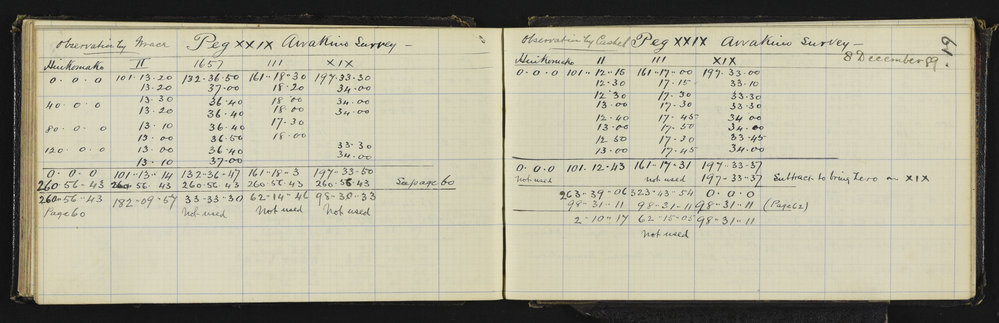 Observation by Peg XXIX Awakino Survey —
Huikomako II 1657 III XIX
0..0..0 101..13..20 132..36..50 161..18..30 197..33..30
13.20 37.00 18.20 34.00
40..0..0 13.30 36.40 18.00 34.00
13.20 36.40 18.00 34.00
80..0..0 13.10 36.40 17.30
13.00 36.50 18.00
120..0..0 13.00 36.40 33.30
13.10 37.00 34.00
0..0..0 101-13-14 132-36-47 161-18-3 197-33-50
260-56-43 260-56-43 260-56-43 260-56-43 260-56-43 See page 60
260-56-43 182-09-57 33-33-30 62-14-46 98-30-33
Page 60 Not used Not used Not used
Observation by Peg XXIX Awakino Survey — 61.
Huikomako II III XIX 8 December 89.
0..0..0 101..12..15 161..17..00 197..33..00
12.30 17.15 33.10
12.30 17.30 33.30
13.00 17.30 33.30
12.40 17.45 34.00
13.00 17.50 34.00
12.50 17.30 33.30
13.00 17.45 34.00
0..0..0 101..12..43 161-17-31 197-33-37
Not used Not used 197-33-37 Subtract to bring Zero on XIX
263-39-06 323-43-54 0..0..0
98-31-11 98-31-11 98-31-11 (Page 62)
2-10-17 62-15-05 98-31-11
Not used